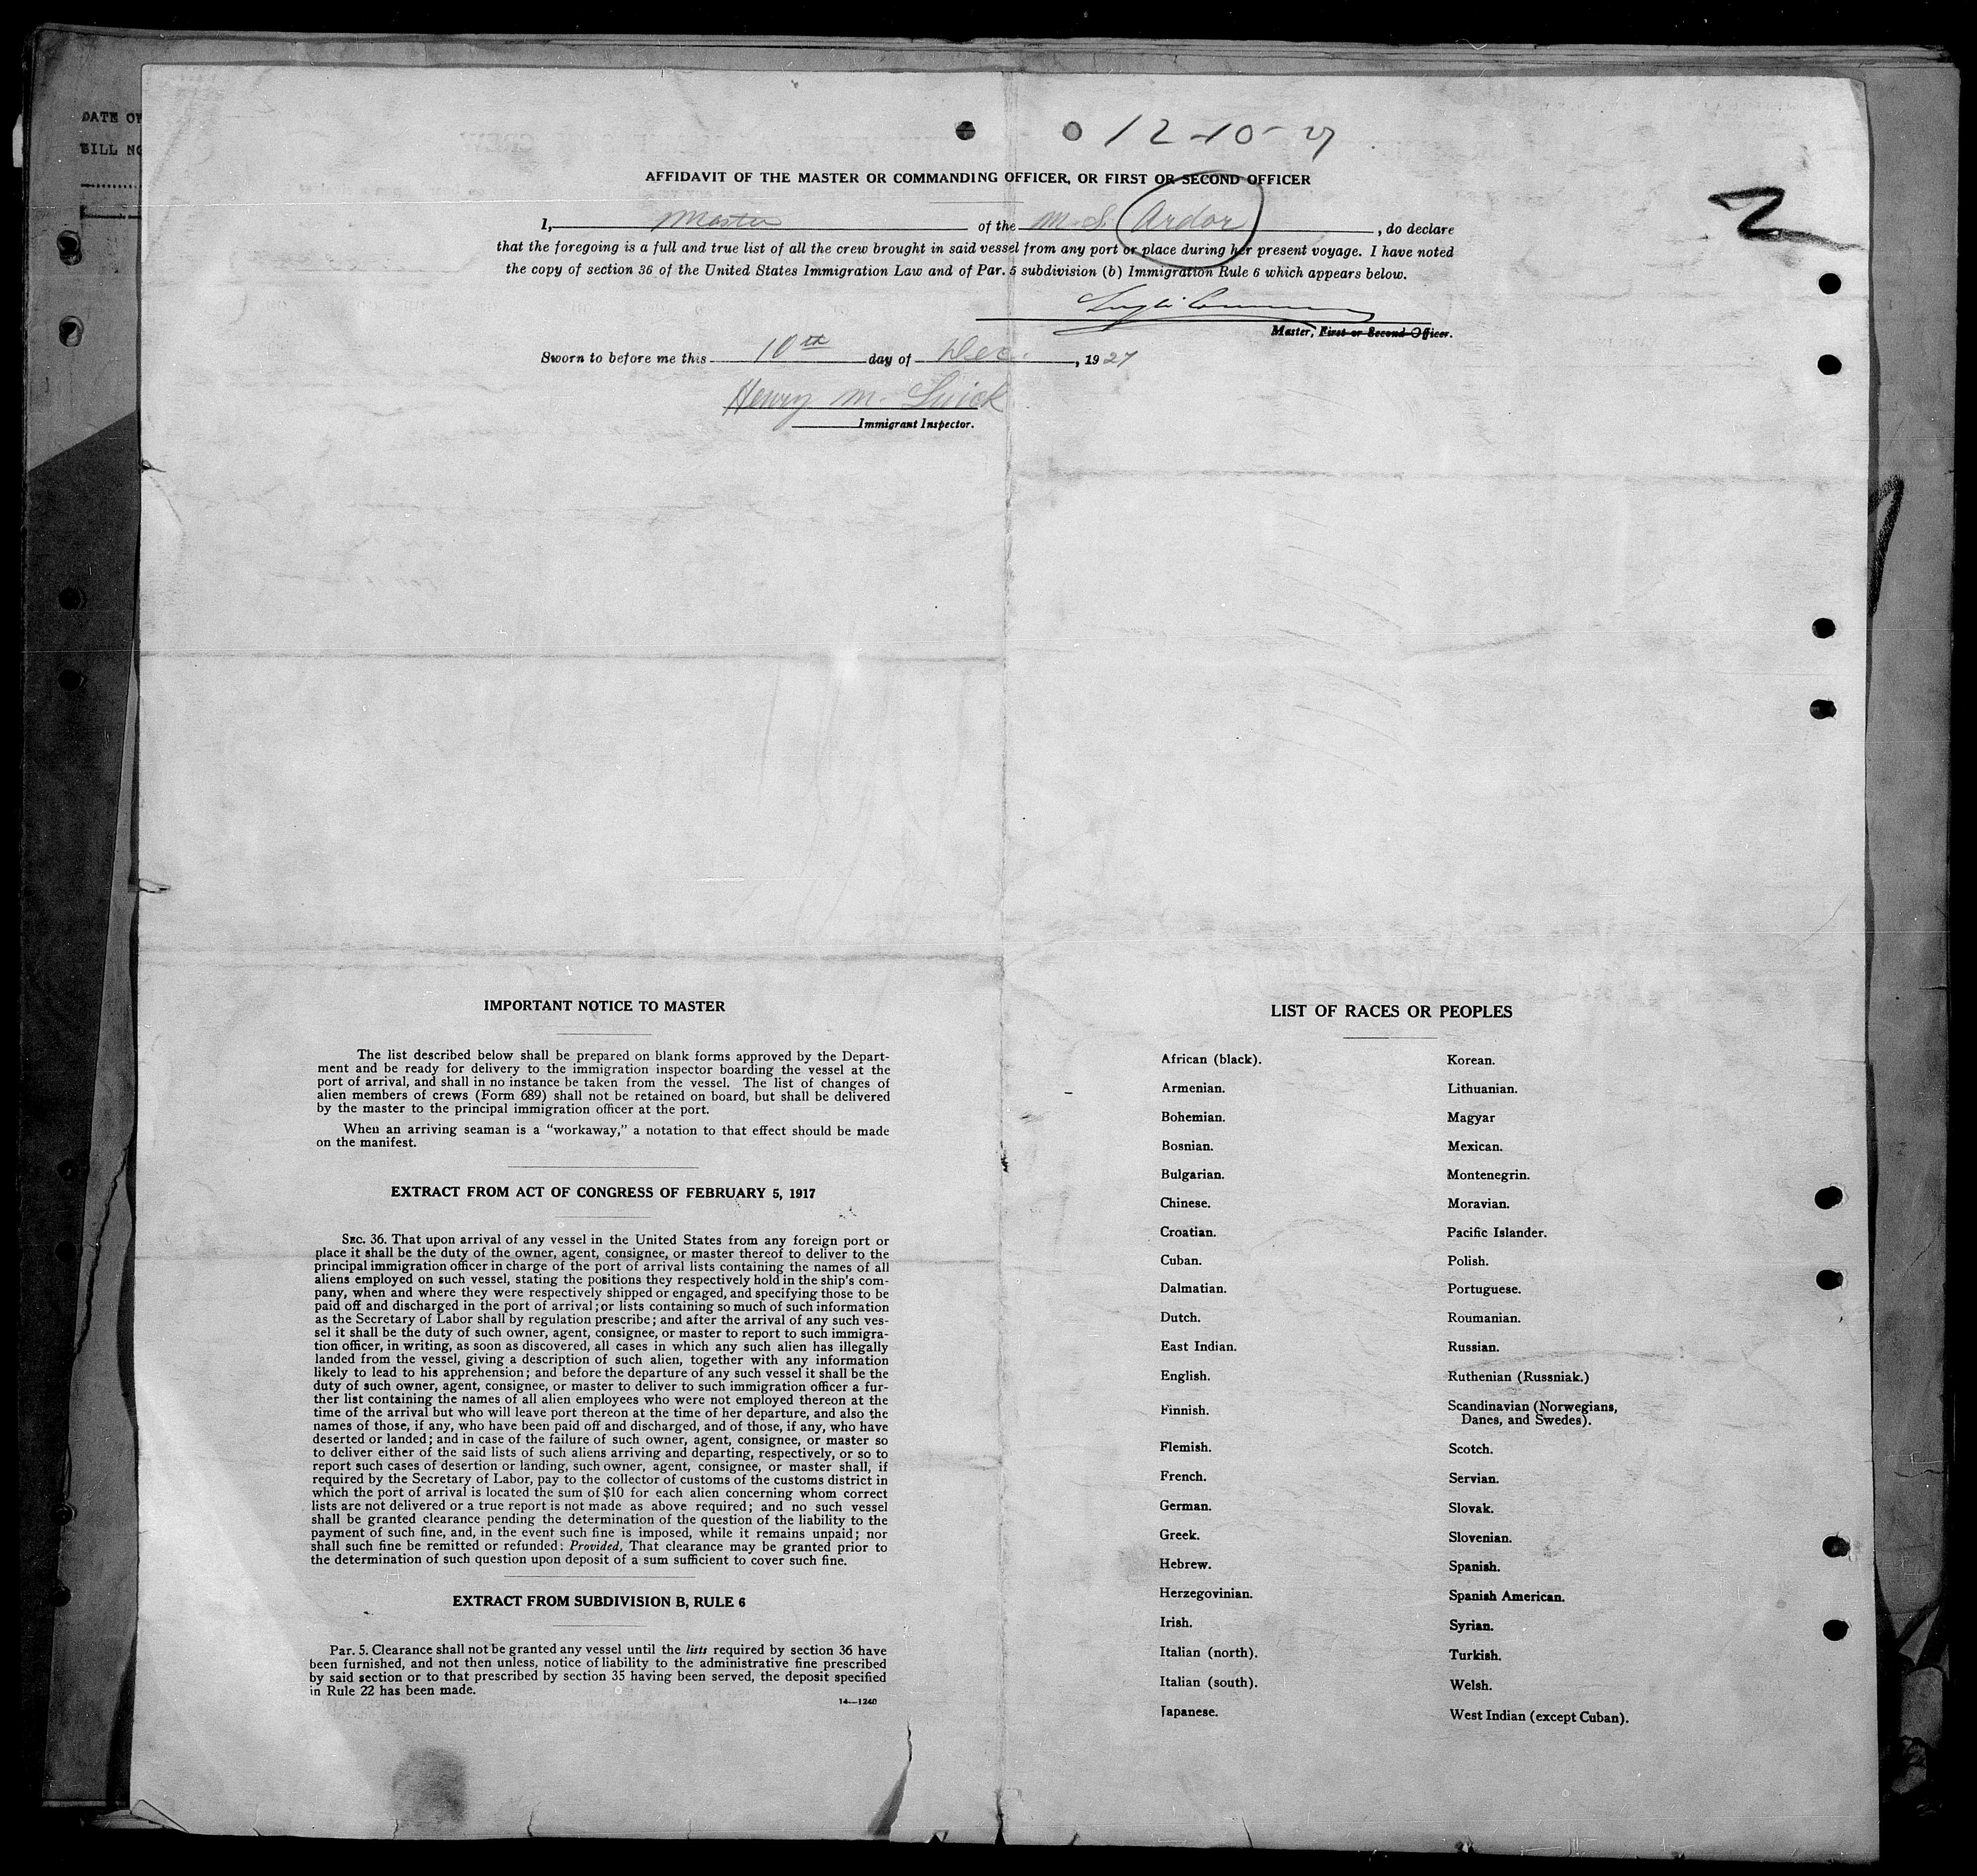 DATE OF
BILL NO
12-10-27
2
AFFIDAVIT OF THE MASTER OR COMMANDING OFFICER, OR FIRST OR SECOND OFFICER
I, Master of the M.S. Ardor, do declare
that the foregoing is a full and true list of all the crew brought in said vessel from any port or place during her present voyage. I have noted
the copy of section 36 of the United States Immigration Law and of Par. 5 subdivision (b) Immigration Rule 6 which appears below.
Master, First or Second Officer.
Sworn to before me this 10th day of Dec., 1927
Henry M.
Immigrant Inspector.
IMPORTANT NOTICE TO MASTER
The list described below shall be prepared on blank forms approved by the Depart-
ment and be ready for delivery to the immigration inspector boarding the vessel at the
port of arrival, and shall in no instance be taken from the vessel. The list of changes of
alien members of crews (Form 689) shall not be retained on board, but shall be delivered
by the master to the principal immigration officer at the port.
When an arriving seaman is a "workaway," a notation to that effect should be made
on the manifest.
EXTRACT FROM ACT OF CONGRESS OF FEBRUARY 5, 1917
SEC. 36. That upon arrival of any vessel in the United States from any foreign port or
place it shall be the duty of the owner, agent, consignee, or master thereof to deliver to the
principal immigration officer in charge of the port of arrival lists containing the names of all
aliens employed on such vessel, stating the positions they respectively hold in the ship's com-
pany, when and where they were respectively shipped or engaged, and specifying those to be
paid off and discharged in the port of arrival; or lists containing so much of such information
as the Secretary of Labor shall by regulation prescribe; and after the arrival of any such ves-
sel it shall be the duty of such owner, agent, consignee, or master to report to such immigra-
tion officer, in writing, as soon as discovered, all cases in which any such alien has illegally
landed from the vessel, giving a description of such alien, together with any information
likely to lead to his apprehension; and before the departure of any such vessel it shall be the
duty of such owner, agent, consignee, or master to deliver to such immigration officer a fur-
ther list containing the names of all alien employees who were not employed thereon at the
time of the arrival but who will leave port thereon at the time of her departure, and also the
names of those, if any, who have been paid off and discharged, and of those, if any, who have
deserted or landed; and in case of the failure of such owner, agent, consignee, or master so
to deliver either of the said lists of such aliens arriving and departing, respectively, or so to
report such cases of desertion or landing, such owner, agent, consignee, or master shall, if
required by the Secretary of Labor, pay to the collector of customs of the customs district in
which the port of arrival is located the sum of $10 for each alien concerning whom correct
lists are not delivered or a true report is not made as above required; and no such vessel
shall be granted clearance pending the determination of the question of the liability to the
payment of such fine, and, in the event such fine is imposed, while it remains unpaid; nor
shall such fine be remitted or refunded: Provided, That clearance may be granted prior to
the determination of such question upon deposit of a sum sufficient to cover such fine.
EXTRACT FROM SUBDIVISION B, RULE 6
Par. 5. Clearance shall not be granted any vessel until the lists required by section 36 have
been furnished, and not then unless, notice of liability to the administrative fine prescribed
by said section or to that prescribed by section 35 having been served, the deposit specified
in Rule 22 has been made.
14—1240
LIST OF RACES OR PEOPLES
African (black).
Armenian.
Bohemian.
Bosnian.
Bulgarian.
Chinese.
Croatian.
Cuban.
Dalmatian.
Dutch.
East Indian.
English.
Finnish.
Flemish.
French.
German.
Greek.
Hebrew.
Herzegovinian.
Irish.
Italian (north).
Italian (south).
Japanese.
Korean.
Lithuanian.
Magyar
Mexican.
Montenegrin.
Moravian.
Pacific Islander.
Polish.
Portuguese.
Roumanian.
Russian.
Ruthenian (Russniak.)
Scandinavian (Norwegians,
Danes, and Swedes).
Scotch.
Servian.
Slovak.
Slovenian.
Spanish.
Spanish American.
Syrian.
Turkish.
Welsh.
West Indian (except Cuban).